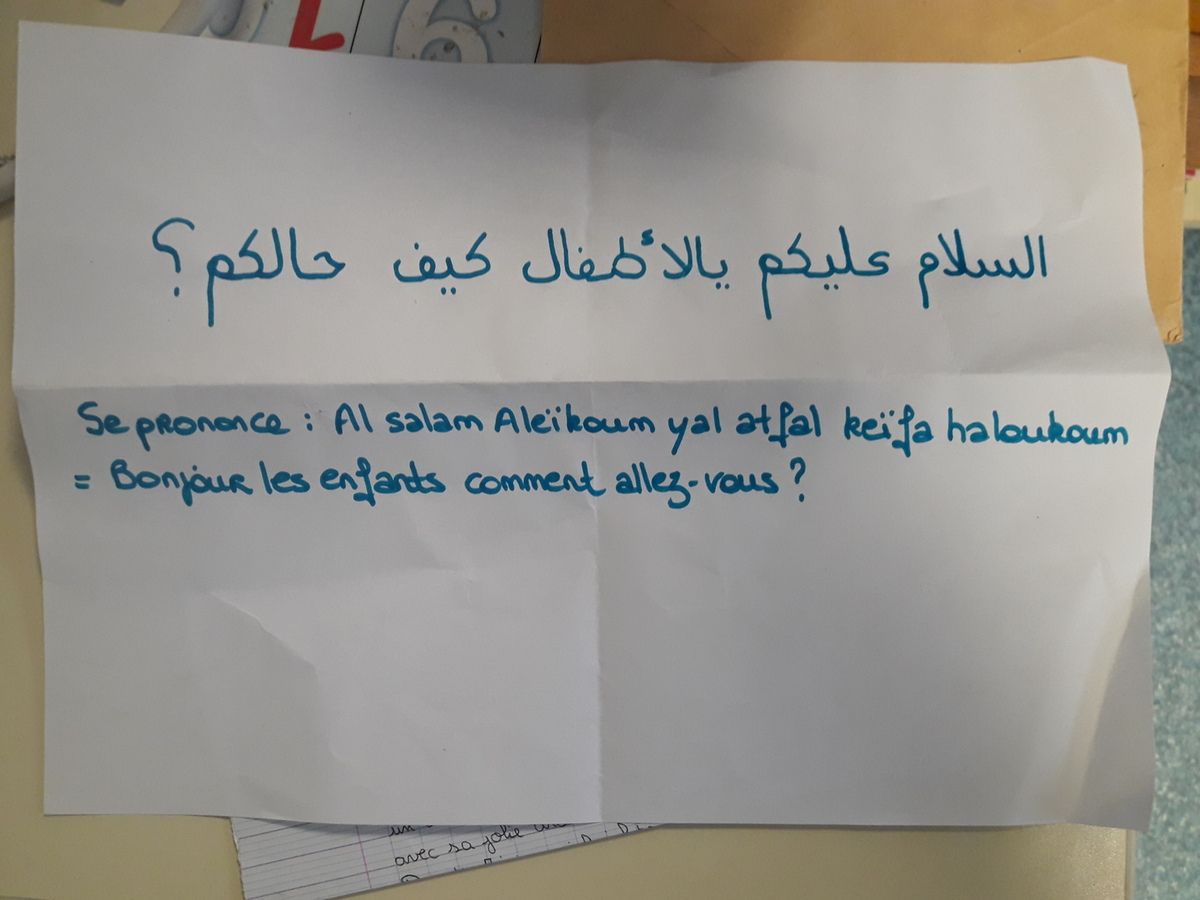 السلام عليكم يالأطفال كيف حالكم؟
Se prononce : Al salam Aleïkoum yal atfal keïfa haloukoum
= Bonjour les enfants comment allez-vous ?
un
avec sa jolie